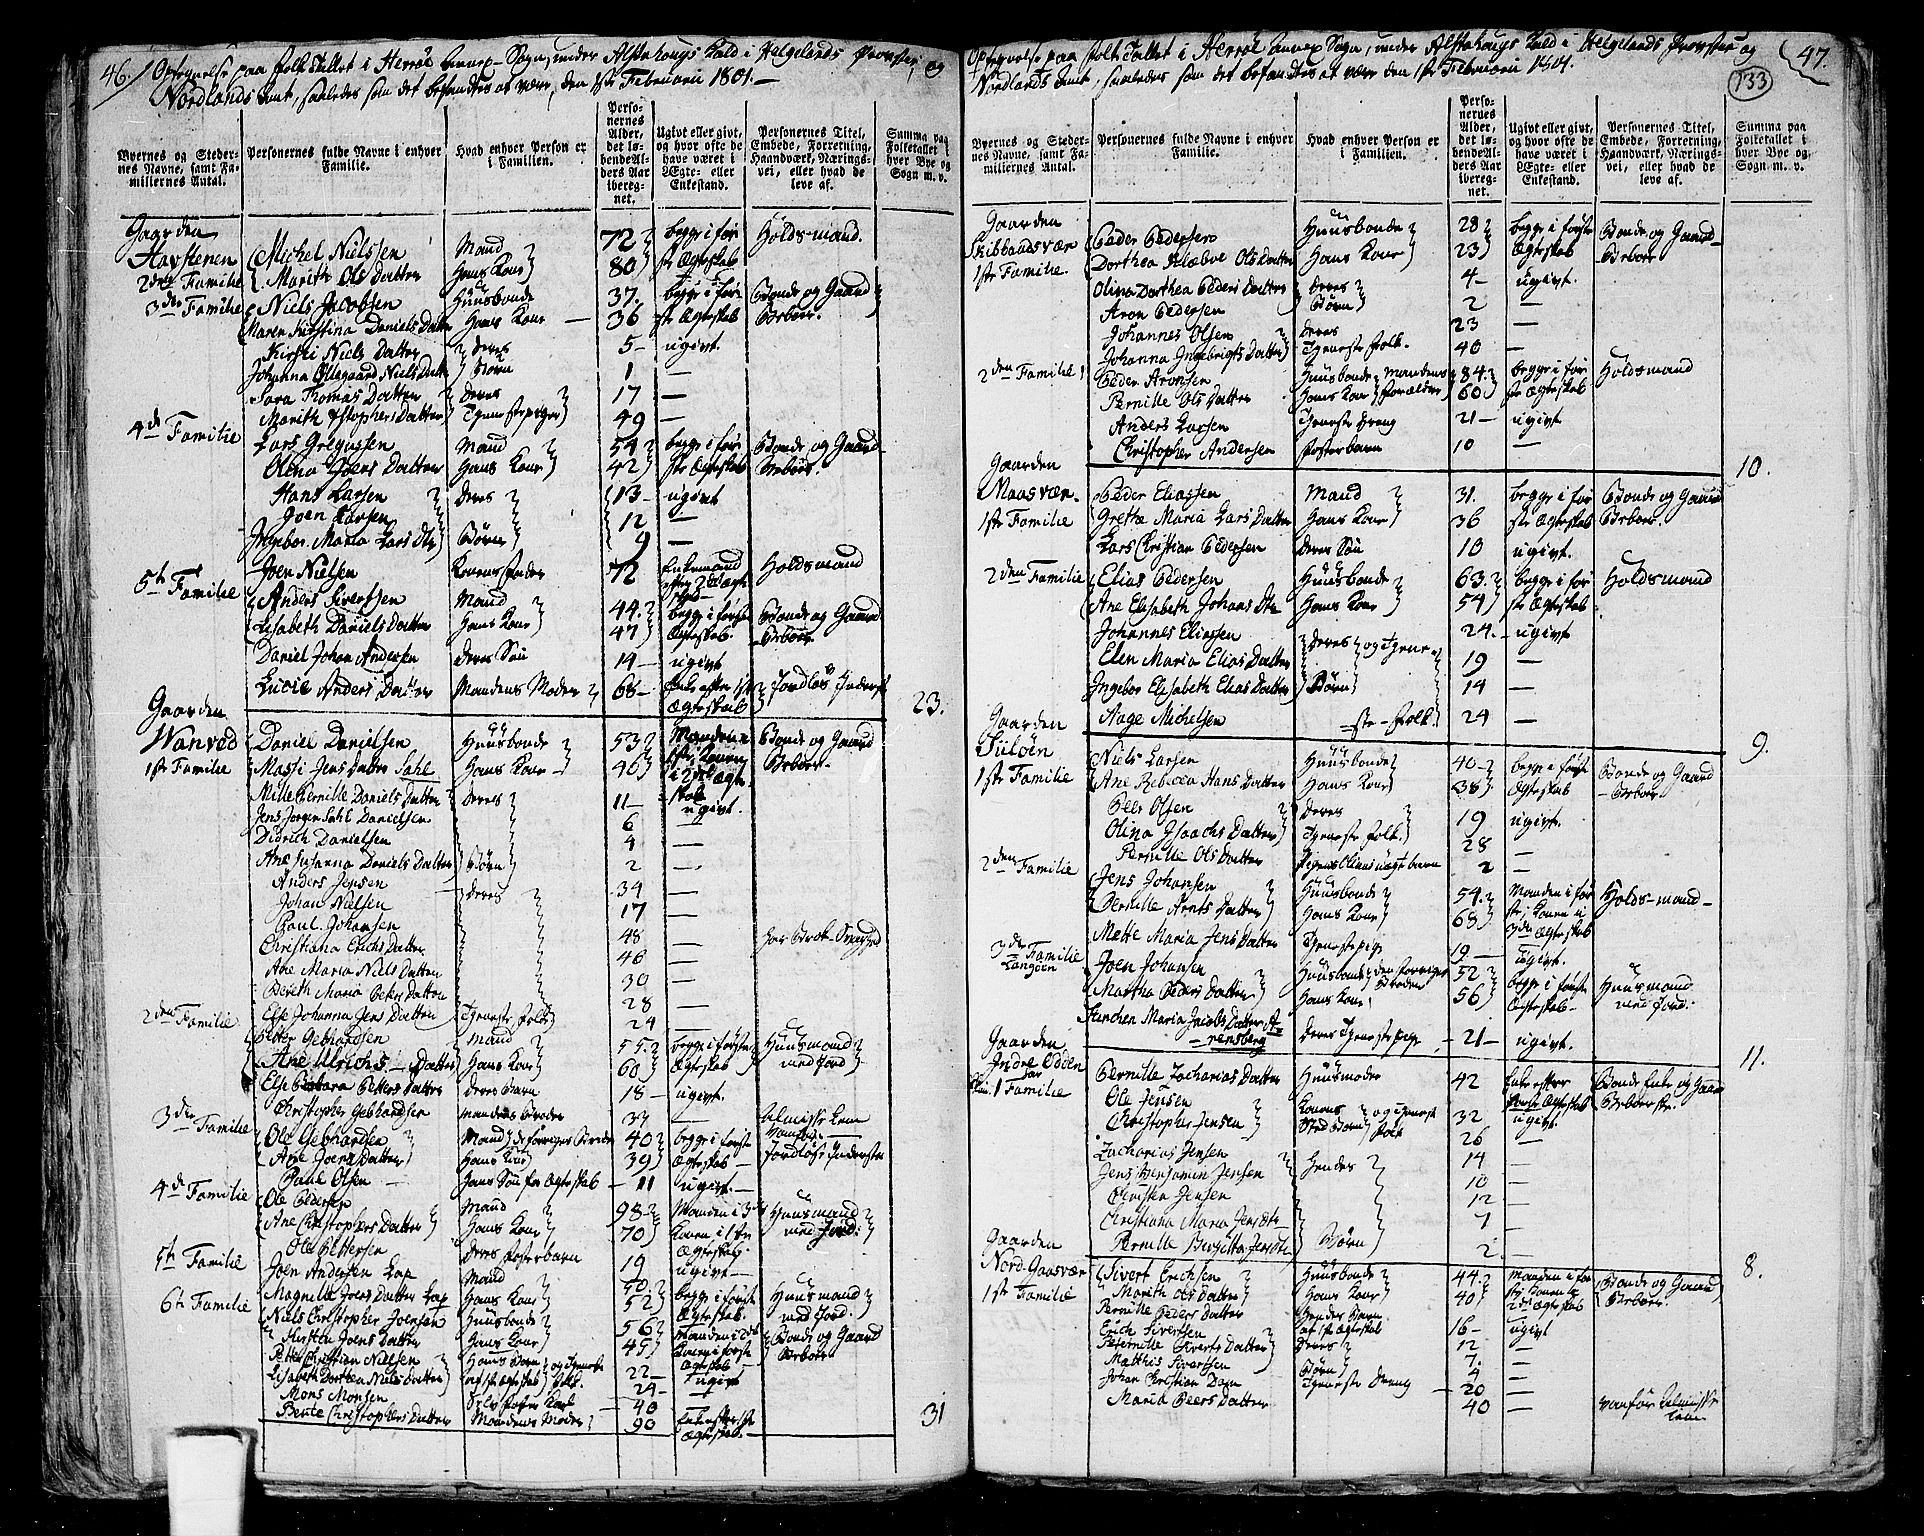 46.
Optegnelse paa Folke Tallet i Herröe Annex-Sogn, under Alstahougs Kald i Helgelands Provstie, og
Nordlands Amt, saaledes som det befandtes at være, den 1ste Februarii 1801.
Byernes og Stedernes Navne, samt Familiernes Antal.
Personernes fulde Navne i enhver Familie.
Hvad enhver Person er i Familien.
Personernes Alder, det løbende Alders Aar iberegnet.
Ugivt eller givt, og hvor ofte de have været i Ægte- eller Enkestand.
Personernes Titel, Embede, Forretning, Haandværk, Næringsvei, eller hvad de leve af.
Summa paa Folketallet i hver Bye og Sogn m. v.
Gaarden
2den Familie Michel Nielssen Mand 72 begge i før- Holdsmand.
Marith Ols Datter Hans Kone 80 ste Ægteskab
3die Familie Niels Jacobsen Huusbonde 37. begge i før- Bonde og Gaard
Maren Kirstina Daniels Datter Hans Kone 36 ste Ægteskab Beboer.
Kirsti Niels Datter deres 5 ugivt.
Johanna Ollegaard Niels Datter Børn 1 —
Sara Thomas Datter deres 17 —
Marith Christophers Datter Tjenestepiger 49 —
4de Familie Lars Gregussen Mand 54 begge i før- Bonde og Gaard
Olina Joens Datter Hans Kone 42 ste Ægteskab Beboer.
Hans Larsen deres 13 ugivt
Joen Larsen 12 —
Ingebor Maria Lars Dtr Børn 9 —
Joen Nielsen Konens Fader 72 Enkemand Holdsmand
5te Familie Anders Sivertsen Mand 44. begge i første Bonde og Gaard
Lisabeth Daniels Datter Hans Kone 47 Ægteskab. Beboer
Daniel Johan Andersen deres Søn 14 ugivt
Lucie Anders Datter Mandens Moder 68 Enke efter 1ste Ægteskab Jordløs Inderst
23.
Gaarden
Wanved Daniel Danielsen Huusbonde 53 Manden Bonde og Gaard
1ste Familie Massi Jens Datter Sahl Hans Kone 46 i 2det Ægteskab Beboer
Mille Pernille Daniels Datter Deres 11 ugivt.
Jens Jørgen Sahl Danielsen 6 —
Didrich Danielsen 4 —
Ane Susanna Daniels Datter Børn 2 —
Anders Jensen deres 34 —
Johan Nielsen 17 —
Paul Johansen 48 —
Christiana Erichs Datter 46 —
Ane Maria Niels Datter 30 —
Bereth Maria Peters Datter 28 —
Else Johanna Jens Datter Tjeneste folk 24 —
2den Familie Peter Gebhardsen Mand 55. begge i første Huusmand
Ane Ulrichs Datter Hans Kone 60 Ægteskab med Jord.
Else Barbara Petters Datter deres Barn 18 ugivt.
Christopher Gebhardsen mandens Broder 37 —
3die Familie Ole Gebhardsen Mand 40 begge i første
Ane Joens Datter Hans Kone 39 Ægteskab Jordløse Inderster
Paul Olsen Hans Søn før Ægteskab 11 ugivt.
4de Familie Ole Pedersen Mand 98 Manden i 3die Huusmand
Ane Christophers Datter Hans Kone 70 Konen i 1ste Ægteskab med Jord.
Ole Pettersen deres fosterbarn 19 ugivt
5te Familie Joen Andersen Lap Mand 50 begge i første Huusmand
Magnilla Joens Datter Lap Hans Kone 52 Ægteskab. med Jord.
6te Familie Niels Christopher Joensen Huusbonde 56 Manden i 2det Bonde og Gaard
Kirsten Joens Datter Hans Kone 45 Konen i første Ægteskab Beboer
Petter Christian Nielsen Hans Børn 22
Lisabeth Dorthea Niels Datter af 1ste Ægteskab 24 ugivt
Mons Monsen 40
Bente Christophers Datter Mandens Moder 90 Ægteskab.
31
47.
133
Optegnelse paa Folke Tallet i Herröe Annex Sogn, under Alstahougs Kald i Helgelands Provstie og
Nordlands Amt, saaledes som det befandtes at være den 1ste Februarii 1801.
Byernes og Stedernes Navne, samt Familiernes Antal.
Personernes fulde Navne i enhver Familie.
Hvad enhver Person er i Familien.
Personernes Alder, det løbende Alders Aar iberegnet.
Ugivt eller givt, og hvor ofte de have været i Ægte- eller Enkestand.
Personernes Titel, Embede, Forretning, Haandværk, Næringsvei, eller hvad de leve af.
Summa paa Folketallet i hver Bye og Sogn m. v.
Gaarden
Skibbaadsvær Peder Pedersen Huusbonde 28 begge i første Bonde og Gaard
1ste Familie. Dorthea Klæboe Ols Datter Hans Kone 23 Ægteskab Beboer
Olina Dorthea Peders Datter deres 4 ugivt.
Aron Pedersen Børn 2 —
Johannes Olsen deres 23 —
Johanna Ingebrigts Datter Tjeneste folk. 40 —
2den Familie Peder Aronsen Huusbonde Mandens 84. begge i før- Holdsmand
Pernille Ols Datter Hans Kone Forældre 60 ste Ægteskab
Anders Larsen Tjeneste Dreng 21 ugivt
Christopher Andersen fosterbarn 10 —
10.
Gaarden
Maasvær. Peder Eliassen Mand 31. begge i før- Bonde og Gaard
1ste Familie Grethe Maria Lars Datter Hans Kone 36 ste Ægteskab Beboer.
Lars Christian Pedersen deres Søn 10 ugivt.
2den Familie Elias Pedersen Huusbonde 63. begge i før- Holdsmand
Ane Elisabeth Johans Dtr Hans Kone 54 ste Ægteskab
Johannes Eliassen deres og Tjene- 24. ugivt
Elen Maria Elias Datter 19 —
Ingebor Elisabeth Elias Datter Børn 14 —
Aage Michelsen ste-folk. 24 —
9.
Gaarden
Niels Larsen Huusbonde 40 begge i første Bonde og Gaard
1ste Familie Ane Rebecca Hans Datter Hans Kone 38 Ægteskab Beboer
Peer Olsen deres 19 ugivt.
Olina Isaachs Datter Tjeneste folk. 28 —
Pernille Ols Datter Pigens Olinas uægte barn 2 —
2den Familie Jens Johansen Huusbonde 54. Manden i før- Holds-mand
Pernille Arnts Datter Hans Kone 68 ste, Konen i 3die Ægteskab
Mette Maria Jens Datter Tjenestepige 19 ugivt.
3die Familie Langøen Joen Johansen Huusbonde den forriges Broder 52 begge i første Huusmand
Martha Peders Datter Hans Kone 56 Ægteskab med Jord.
Maria Jacobs Datter Arensberg deres Tjenestepige 21 ugivt.
11.
Gaarden
Indre Odden Pernille Zacharias Datter Huusmoder 42 Enke efter Bonde Enke og Gaard
1 Familie Ole Jensen Konens og Tjeneste 32 ugivt
Christopher Jensen Sted Børn folk 26 —
Zacharias Jensen Hendes 14 —
Jens Benjamin Jensen 10 —
Christen Jensen 12 —
Christiana Maria Jens Dtr 7 —
Pernille Birgitta Jens Dtr Børn 2 —
8.
Gaarden
Nord-Gaasvær Sivert Erichsen Huusbonde 44. Manden i før- Bonde og Gaard
1ste Familie Marith Ols Datter Hans Kone 40 2det Ægteskab Beboer.
Pernille Peders Datter Hendes Barn af 1ste Ægteskab 16 ugivt
Erich Sivertsen 12 —
Petternille Siverts Datter deres 7. —
Matthis Sivertsen Børn 4 —
Johan Christian Tjeneste Dreng 20 —
Maria Peers Datter 40 —